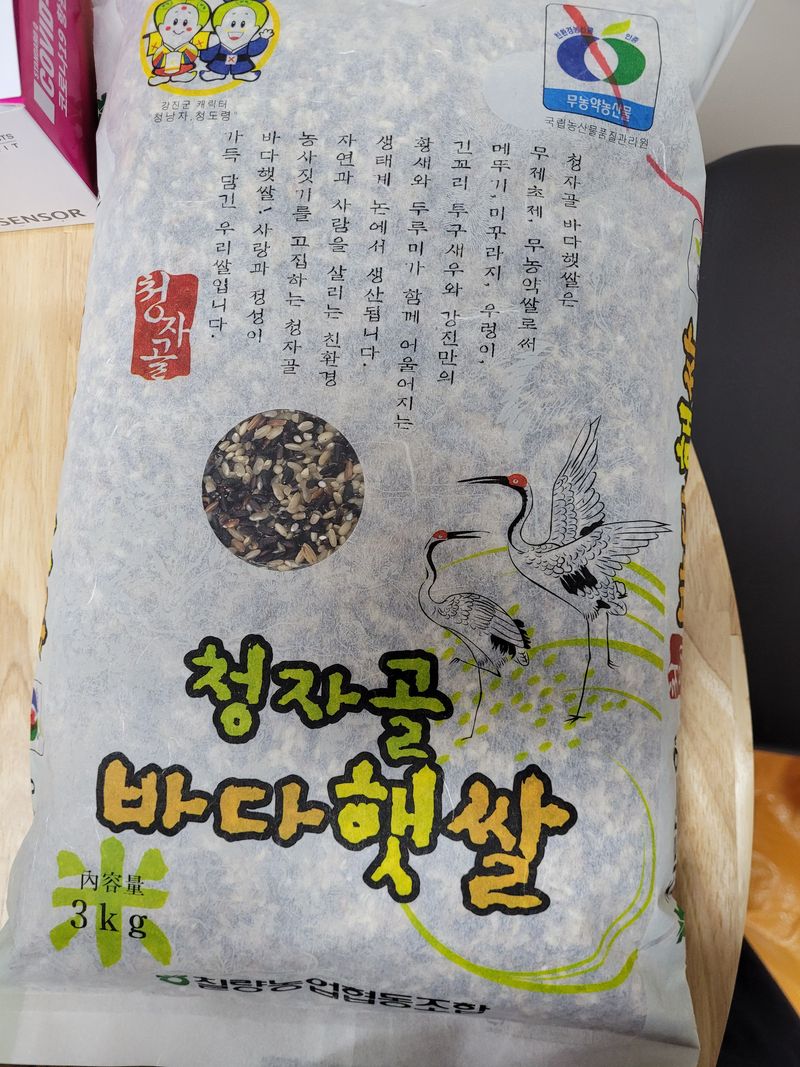 COVID
SENSOR
강진군 캐릭터
청낭자, 청도령
친환경농산물 인증
무농약농산물
국립농산물품질관리원
청자골 바다햇쌀은
무제초제, 무농약쌀로써
메뚜기, 미꾸라지, 우렁이,
긴꼬리 투구새우와 강진만의
황새와 두루미가 함께 어울어지는
생태계 논에서 생산됩니다.
자연과 사람을 살리는 친환경
농사짓기를 고집하는 청자골
바다햇쌀! 사랑과 정성이
가득 담긴 우리쌀입니다.
청자골
청자골
바다햇쌀
內容量
3kg
칠량농업협동조합